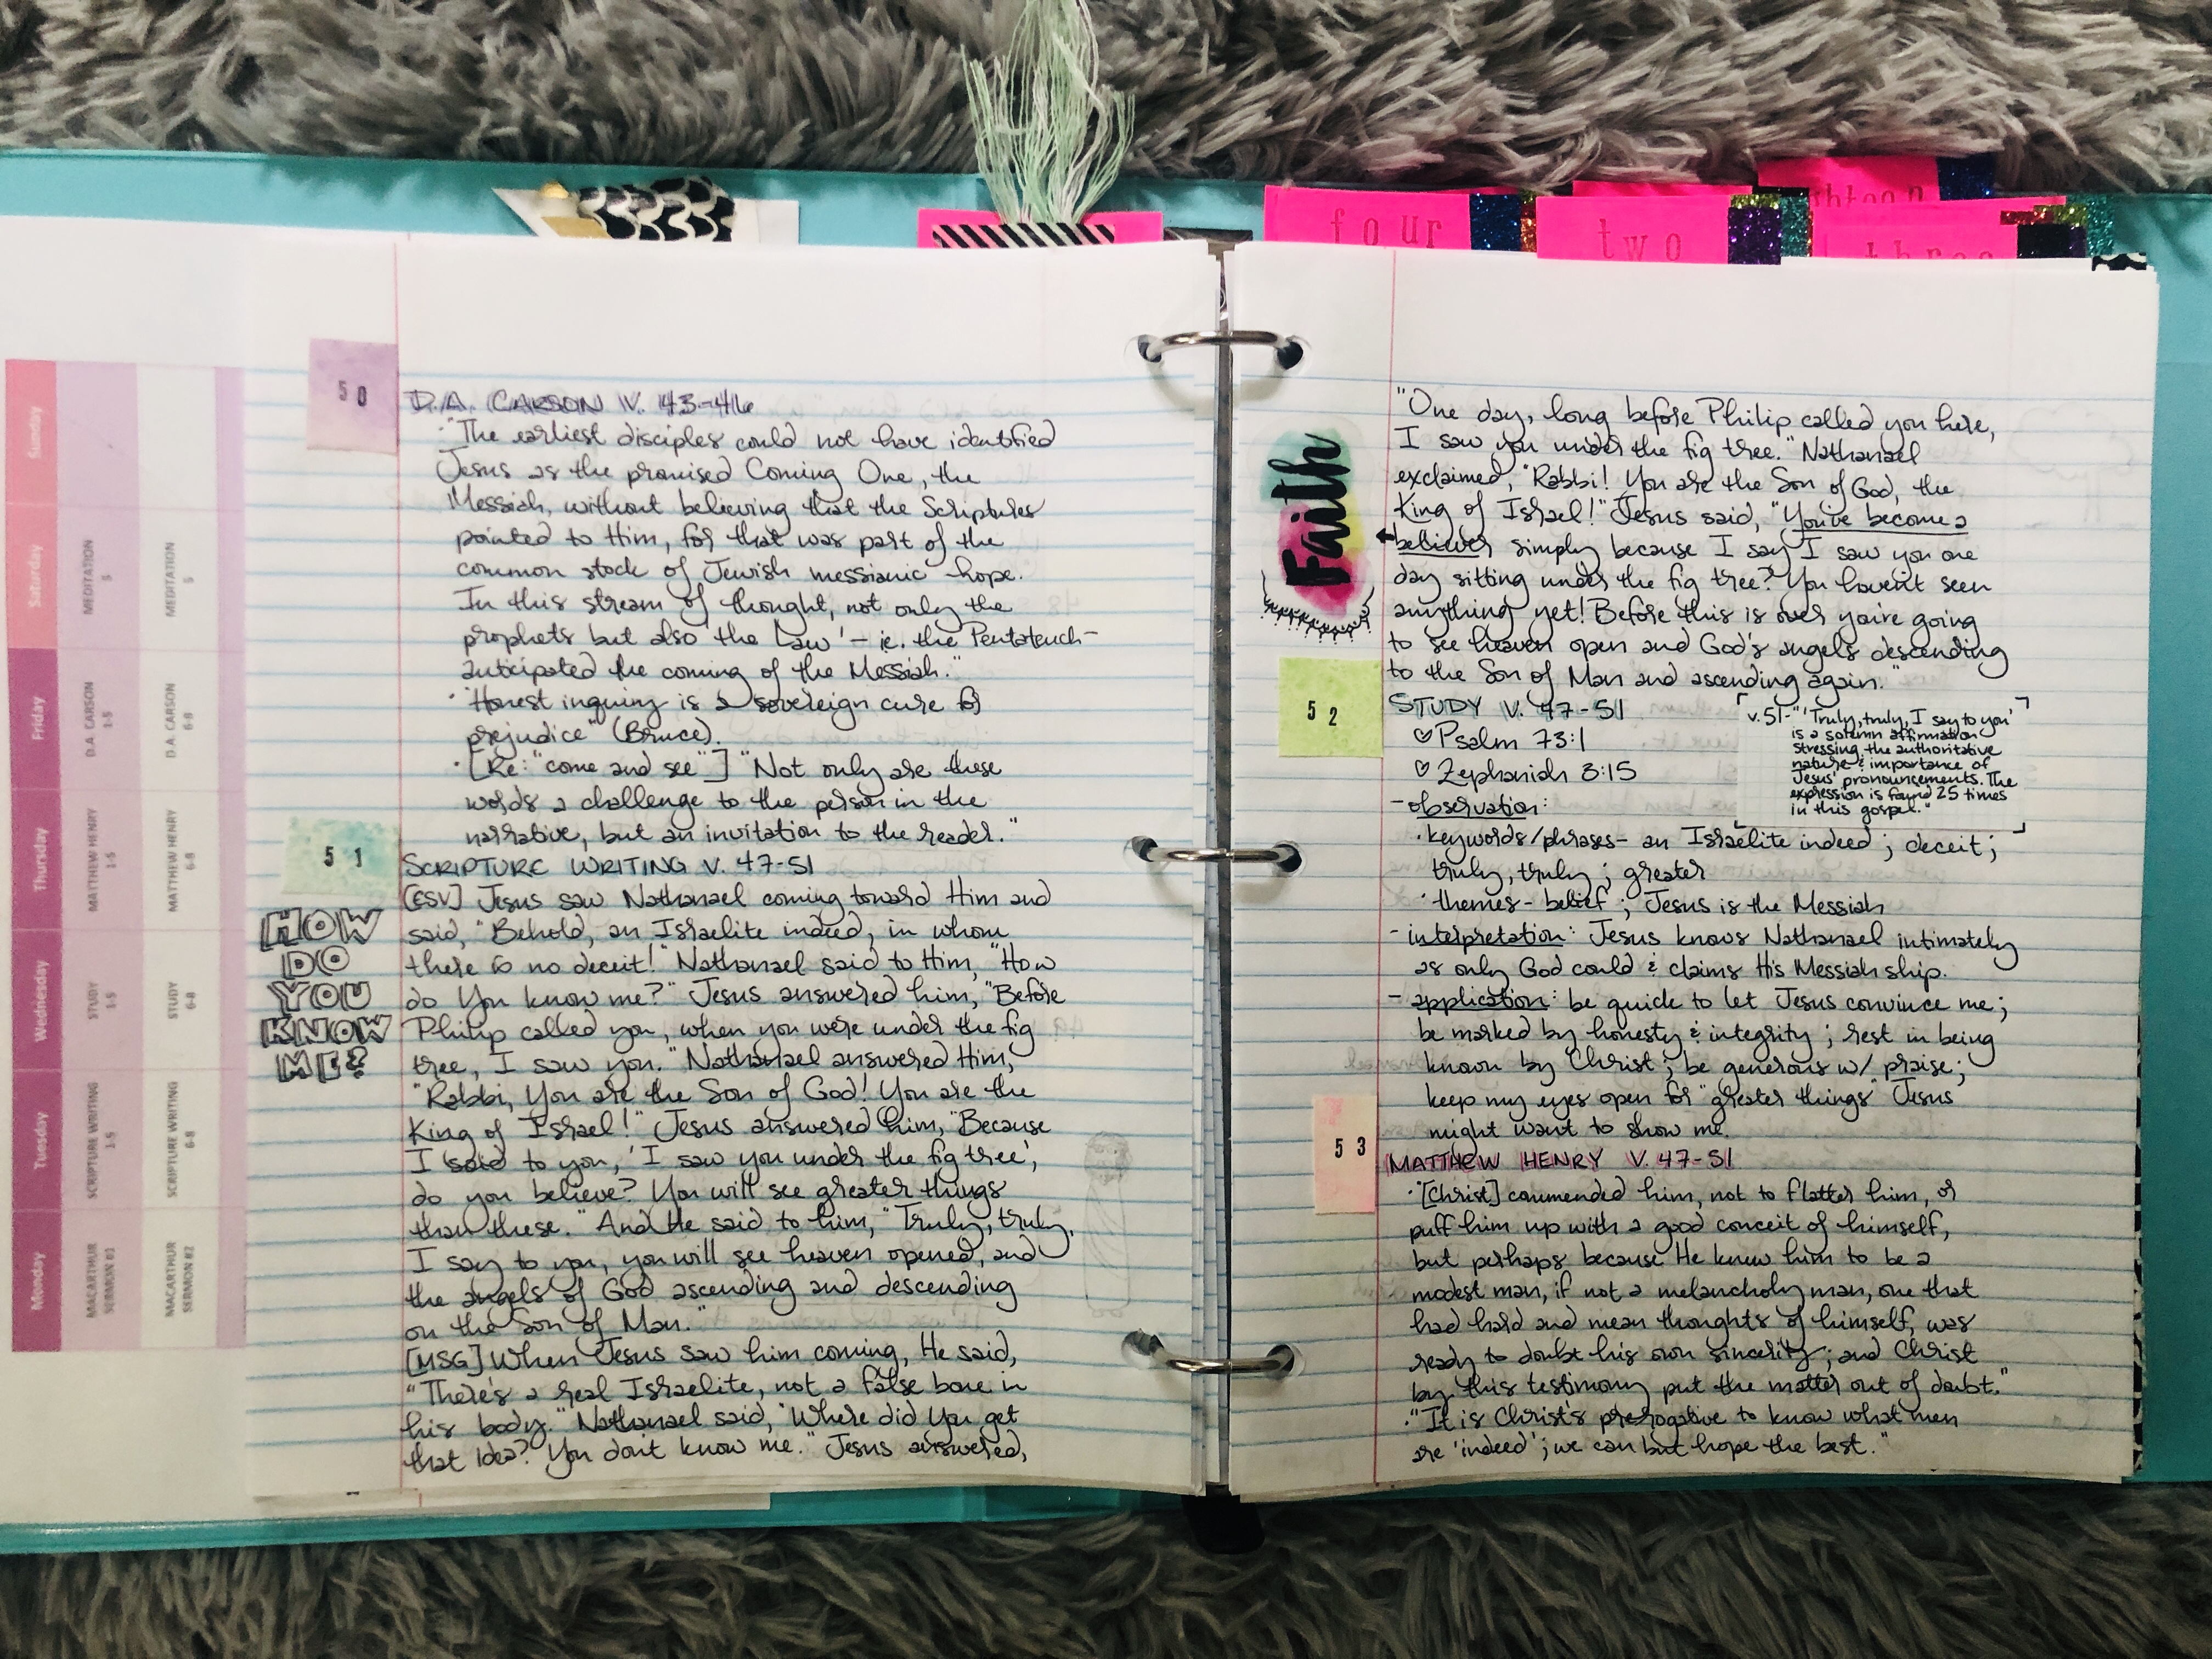 four
two
three
Sunday
Saturday
MEDITATION
5
MEDITATION
5
Friday
D.A. CARSON
1-5
D.A. CARSON
6-8
Thursday
MATTHEW HENRY
1-5
MATTHEW HENRY
6-8
Wednesday
STUDY
1-5
STUDY
6-8
Tuesday
SCRIPTURE WRITING
1-5
SCRIPTURE WRITING
6-8
Monday
MACARTHUR
SERMON #1
MACARTHUR
SERMON #2
50
D.A. CARSON V. 43-46
· "The earliest disciples could not have identified
Jesus as the promised Coming One, the
Messiah, without believing that the Scriptures
pointed to Him, for that was part of the
common stock of Jewish messianic hope.
In this stream of thought, not only the
prophets but also the 'Law' – ie. the Pentateuch –
anticipated the coming of the Messiah."
· "Honest inquiry is a sovereign cure for
prejudice" (Bruce).
· [Re: "come and see"] "Not only are these
words a challenge to the person in the
narrative, but an invitation to the reader."
51
SCRIPTURE WRITING V. 47-51
[ESV] Jesus saw Nathanael coming toward Him and
said, "Behold, an Israelite indeed, in whom
there is no deceit!" Nathanael said to Him, "How
do You know me?" Jesus answered him, "Before
Philip called you, when you were under the fig
tree, I saw you." Nathanael answered Him,
"Rabbi, You are the Son of God! You are the
King of Israel!" Jesus answered him, "Because
I said to you, 'I saw you under the fig tree',
do you believe? You will see greater things
than these." And He said to him, "Truly, truly,
I say to you, you will see heaven opened, and
the angels of God ascending and descending
on the Son of Man."
[MSG] When Jesus saw him coming, He said,
"There's a real Israelite, not a false bone in
his body." Nathanael said, "Where did You get
that idea? You don't know me." Jesus answered,
HOW
DO
YOU
KNOW
ME?
"One day, long before Philip called you here,
I saw you under the fig tree." Nathanael
exclaimed, "Rabbi! You are the Son of God, the
King of Israel!" Jesus said, "You've become a
believer simply because I say I saw you one
day sitting under the fig tree? You haven't seen
anything yet! Before this is over you're going
to see heaven open and God's angels descending
to the Son of Man and ascending again."
Faith
52
STUDY V. 47-51
♡ Psalm 73:1
♡ Zephaniah 3:15
v. 51- "'Truly, truly, I say to you'
is a solemn affirmation
stressing the authoritative
nature & importance of
Jesus' pronouncements. The
expression is found 25 times
in this gospel."
- observation:
· keywords/phrases- an Israelite indeed; deceit;
truly, truly; greater
· themes- belief; Jesus is the Messiah
- interpretation: Jesus knows Nathanael intimately
as only God could & claims His Messiahship.
- application: be quick to let Jesus convince me;
be marked by honesty & integrity; rest in being
known by Christ; be generous w/ praise;
keep my eyes open for "greater things" Jesus
might want to show me.
53
MATTHEW HENRY V. 47-51
· "[Christ] commended him, not to flatter him, or
puff him up with a good conceit of himself,
but perhaps because He knew him to be a
modest man, if not a melancholy man, one that
had hard and mean thoughts of himself, was
ready to doubt his own sincerity; and Christ
by this testimony put the matter out of doubt."
· "It is Christ's prerogative to know what men
are 'indeed'; we can but hope the best."